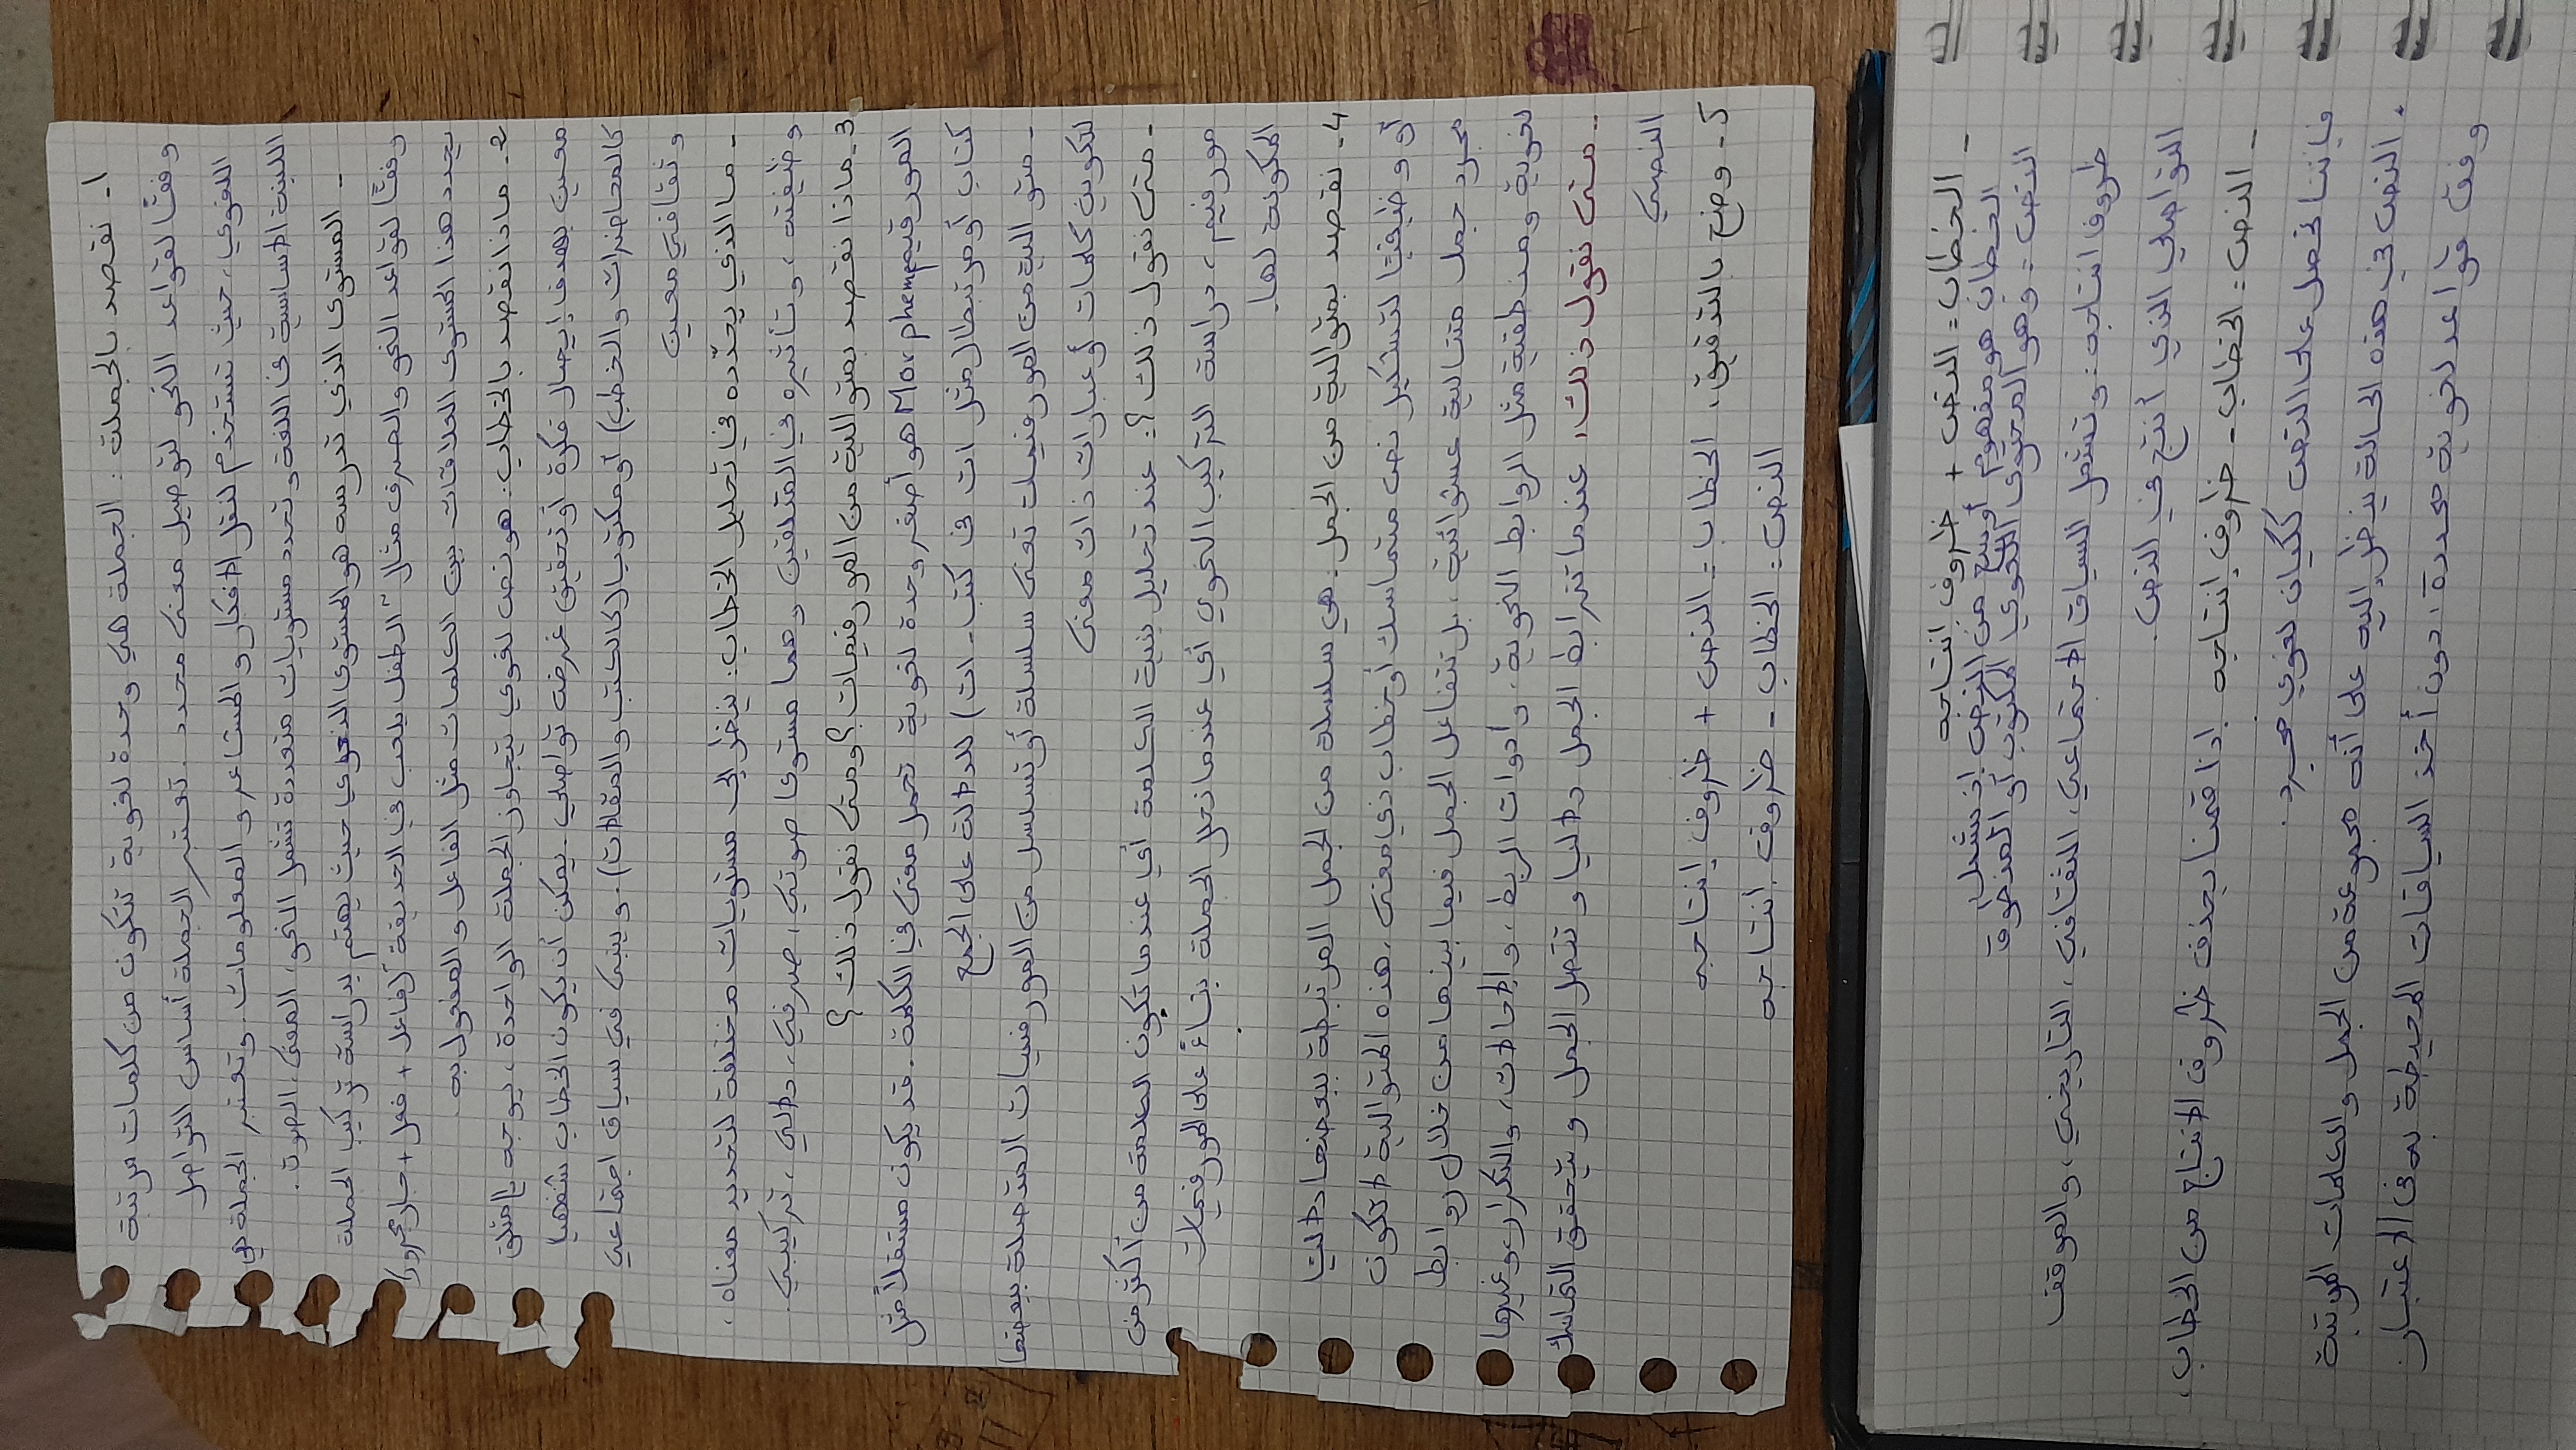 1- نقصد بالجملة : الجملة هي وحدة لغوية تتكون من كلمات مرتبة
وفقًا لقواعد النحو لتوصيل معنى محدد. تعتبر الجملة أساس التواصل
اللغوي، حيث تستخدم لنقل الافكار و المشاعر و المعلومات. وتعتبر الجملة هي
اللبنة الاساسية في اللغة و تحدد مستويات متعددة تشمل النحو، المعنى، الصوت.
- المستوى الذي تدرسه هو المستوى النحوي حيث يهتم بدراسة تركيب الجملة
وفقًا لقواعد النحو والصرف مثال "الطفل يلعب في الحديقة (فاعل + فعل + جار مجرور)
يحدد هذا المستوى العلاقات بين الكلمات مثل الفاعل و المفعول به.
2- ماذا نقصد بالخطاب: هو نص لغوي يتجاوز الجملة الواحدة، يوجه إلى متلق
معين بهدف إيصال فكرة أو تحقيق غرض تواصلي. يمكن أن يكون الخطاب شفهيا
كالمحاضرات والخطب) أو مكتوبا (كالكتب والمقالات). ويبنى في سياق اجتماعي
وثقافي معين
- ما الذي يحدّده في تحليل الخطاب: ينظر إلى مستويات مختلفة لتحديد معناه،
وظيفته، وتأثيره في المتلقين وهما مستوى صوتي، صرفي، دلالي، تركيبي.
3- ماذا نقصد بمتوالية من المورفيمات؟ ومتى نقول ذلك؟
المورفيم Morphem هو أصغر وحدة لغوية تحمل معنى في الكلمة. قد يكون مستقلًا مثل
كتاب أو مرتبطا (مثل ات في كتب - ات) للدلالة على الجمع
- متوالية من المورفيمات تعني سلسلة أو تسلسل من المورفيمات المتصلة ببعضها
لتكوين كلمات أو عبارات ذات معنى
- متى نقول ذلك؟: عند تحليل بنية الكلمة أي عندما تكون الكلمة من أكثر من
مورفيم، دراسة التركيب النحوي أي عندما نحلل الجملة بناءً على المورفيمات
المكونة لها.
4- نقصد بمتوالية من الجمل: هي سلسلة من الجمل المرتبطة ببعضها دلاليا
أو وظيفيا لتشكيل نص متماسك أو خطاب ذي معنى، هذه المتوالية لا تكون
مجرد جمل متتالية عشوائية، بل تتفاعل الجمل فيما بينها من خلال روابط
لغوية ومنطقية مثل الروابط النحوية، وأدوات الربط، و الإحالات، والتكرار وغيرها
- متى نقول ذلك، عندما تترابط الجمل دلاليا و تتصل الجمل و يتحقق التماسك
النصي
5- وضح بالتدقيق، الخطاب = النص + ظروف إنتاجه
النص = الخطاب - ظروف إنتاجه
- الخطاب = النص + ظروف إنتاجه
الخطاب هو مفهوم أوسع من النص إذ يشمل:
النص: وهو المحتوى اللغوي المكتوب أو المنطوق
ظروف إنتاجه: وتشمل السياق الاجتماعي، الثقافي، التاريخي، والموقف
التواصلي الذي أنتج في النص.
- النص = الخطاب - ظروف إنتاجه إذا قمنا بحذف ظروف الإنتاج من الخطاب،
فإننا نحصل على النص ككيان لغوي مجرد.
. النص في هذه الحالة ينظر إليه على أنه مجموعة من الجمل والكلمات المرتبة
وفق قواعد لغوية محددة، دون أخذ السياقات المحيطة به في الاعتبار